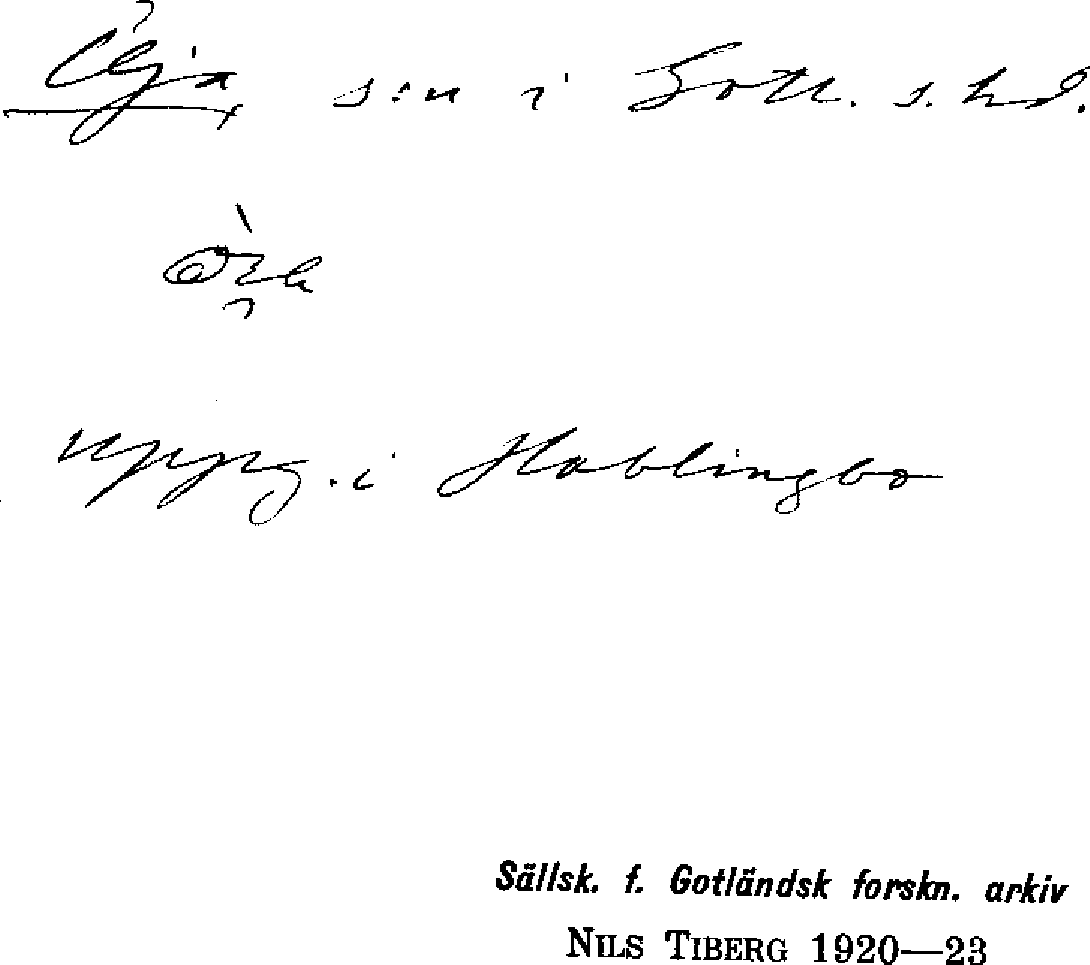 Öja s:n i Gotl. s. hd.
uppg. i Hablingbo
Sällsk. f. Gotländsk forskn. arkiv
NILS TIBERG 1920—23